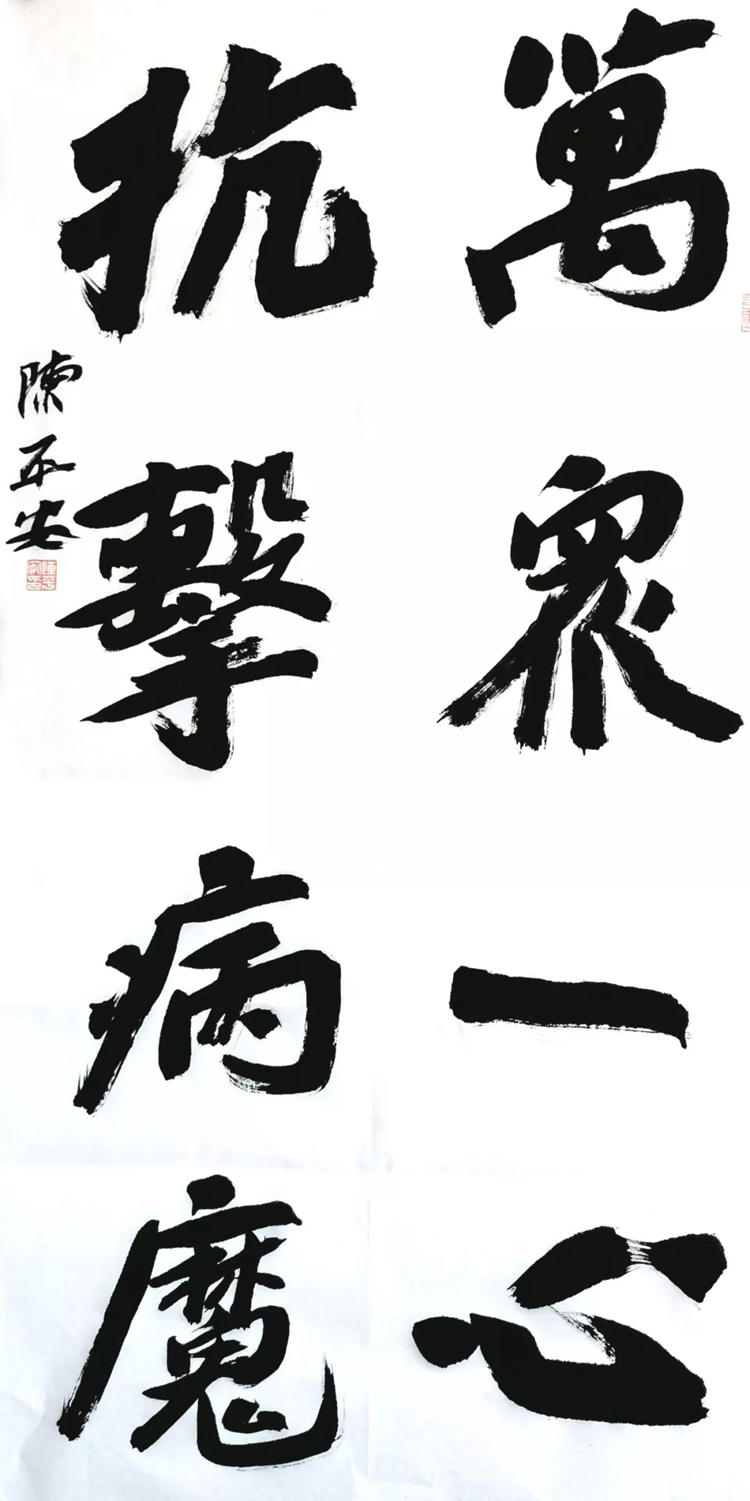 萬眾一心
抗擊病魔
陳平安